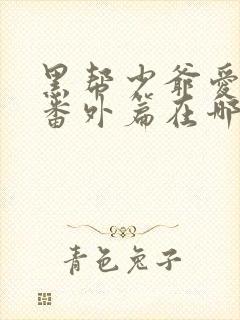 黑帮少爷爱
番外篇在哪
青色兔子